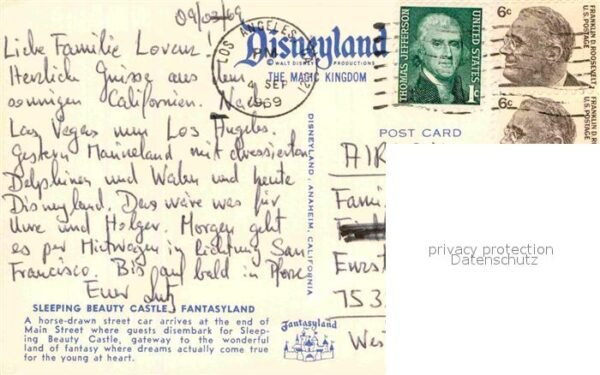 09/03/69
Liebe Familie Lorenz!
Herzliche Grüsse aus dem
sonnigen Californien. Nach
Las Vegas nun Los Angeles.
Gestern Marineland mit dressierten
Delphinen und Walen und heute
Disneyland. Das wäre was für
Uwe und Holger. Morgen geht
es per Mietwagen in Richtung San
Francisco. Bis auf bald in Pforz
Euer Lutz
SLEEPING BEAUTY CASTLE, FANTASYLAND
A horse-drawn street car arrives at the end of
Main Street where guests disembark for Sleep-
ing Beauty Castle, gateway to the wonderful
land of fantasy where dreams actually come true
for the young at heart.
Disneyland
© WALT DISNEY PRODUCTIONS
THE MAGIC KINGDOM
LOS ANGELES
PM
4 SEP
1969
DISNEYLAND, ANAHEIM, CALIFORNIA
Fantasyland
THOMAS JEFFERSON
UNITED STATES
1c
6c
FRANKLIN D. ROOSEVELT
U.S. POSTAGE
6c
FRANKLIN D. ROOSEVELT
U.S. POSTAGE
POST CARD
AIR
Famil
Enzst
753
Wes
privacy protection
Datenschutz